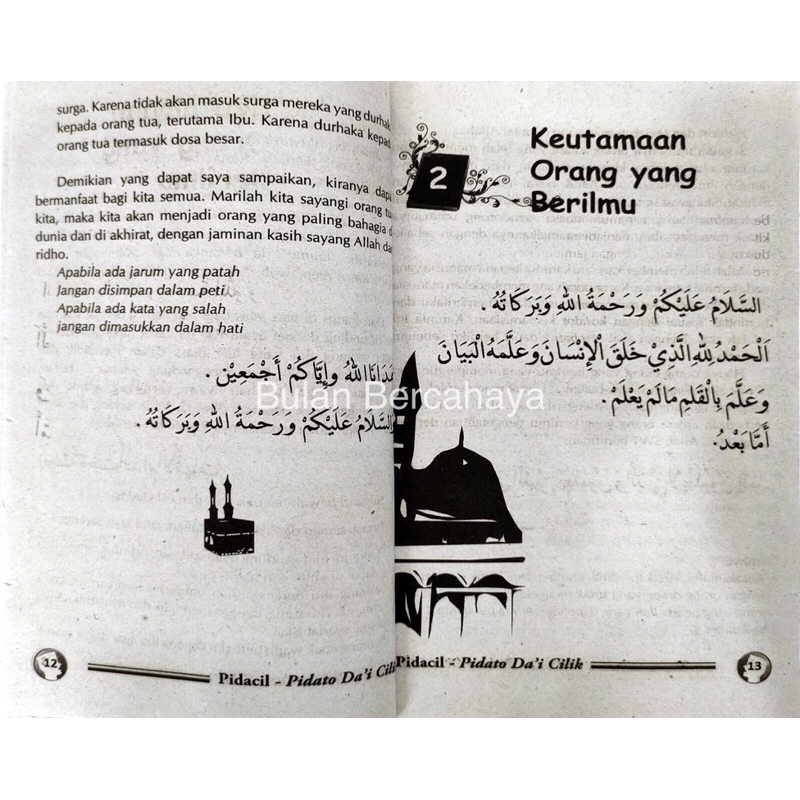 surga. Karena tidak akan masuk surga mereka yang durhak
kepada orang tua, terutama Ibu. Karena durhaka kepad
orang tua termasuk dosa besar.
Demikian yang dapat saya sampaikan, kiranya dapa
bermanfaat bagi kita semua. Marilah kita sayangi orang tu
kita, maka kita akan menjadi orang yang paling bahagia d
dunia dan di akhirat, dengan jaminan kasih sayang Allah dan
ridho.
Apabila ada jarum yang patah
Jangan disimpan dalam peti
Apabila ada kata yang salah
jangan dimasukkan dalam hati
هَدَانَا اللهُ وَإِيَّاكُمْ أَجْمَعِيْنَ .
اَلسَّلاَمُ عَلَيْكُمْ وَرَحْمَةُ اللهِ وَبَرَكَاتُهُ .
12
Pidacil - Pidato Da'i Cili
2
Keutamaan
Orang yang
Berilmu
السَّلاَمُ عَلَيْكُمْ وَرَحْمَةُ اللهِ وَبَرَكَاتُهُ .
اَلْحَمْدُ لِلهِ الَّذِيْ خَلَقَ الْإِنْسَانَ وَعَلَّمَهُ الْبَيَانَ
وَعَلَّمَ بِالْقَلَمِ مَالَمْ يَعْلَمْ .
أَمَّا بَعْدُ:
Pidacil - Pidato Da'i Cilik
13
Bulan Bercahaya